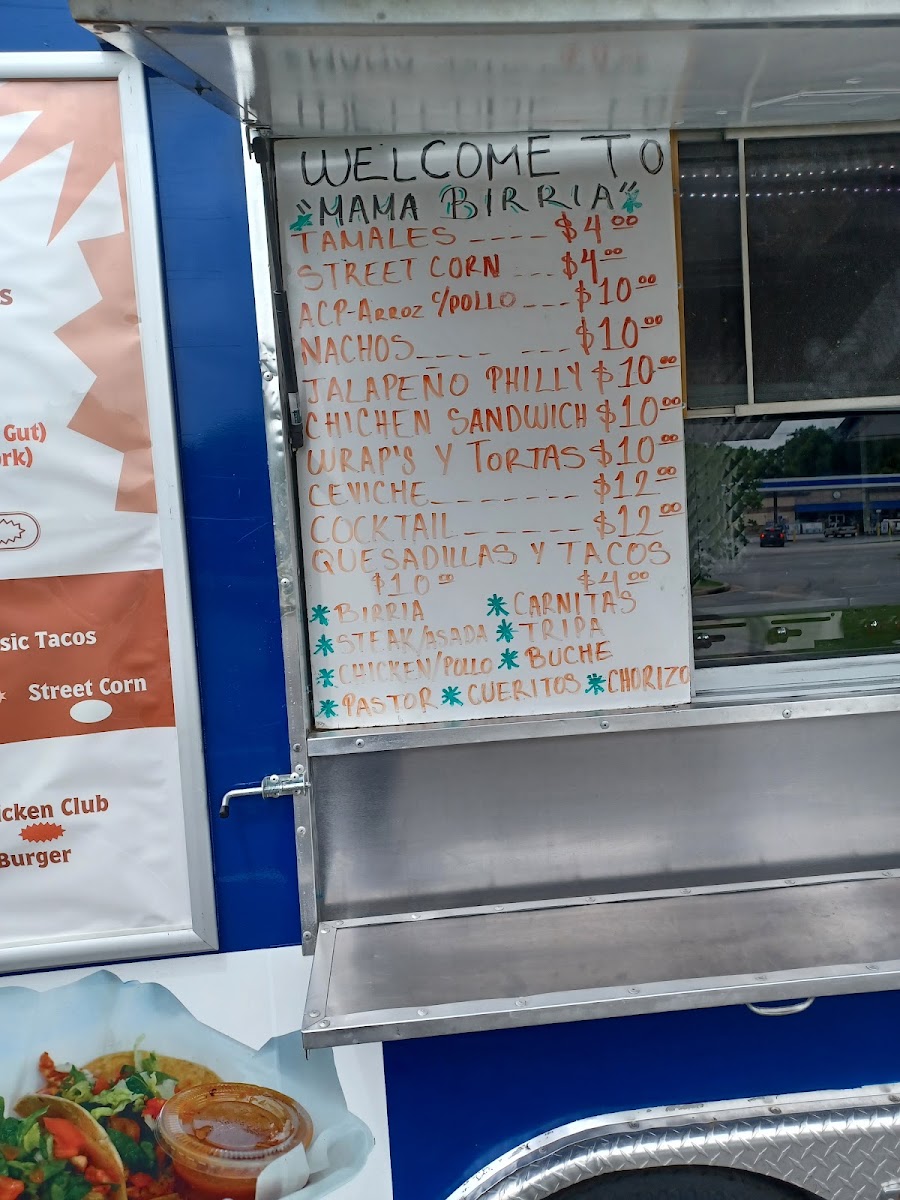 WELCOME TO
"MAMA BIRRIA"
TAMALES ---- $4.00
STREET CORN --- $4.00
ACP-ARROZ C/POLLO --- $10.00
NACHOS---- --- $10.00
JALAPEÑO PHILLY $10.00
CHICHEN SANDWICH $10.00
WRAP'S Y TORTAS $10.00
CEVICHE-------- $12.00
COCKTAIL------- $12.00
QUESADILLAS Y TACOS
$10.00 $4.00
* BIRRIA * CARNITAS
* STEAK/ASADA * TRIPA
* CHICKEN/POLLO * BUCHE
* PASTOR * CUERITOS * CHORIZO
s
Gut)
rk)
sic Tacos
Street Corn
icken Club
Burger